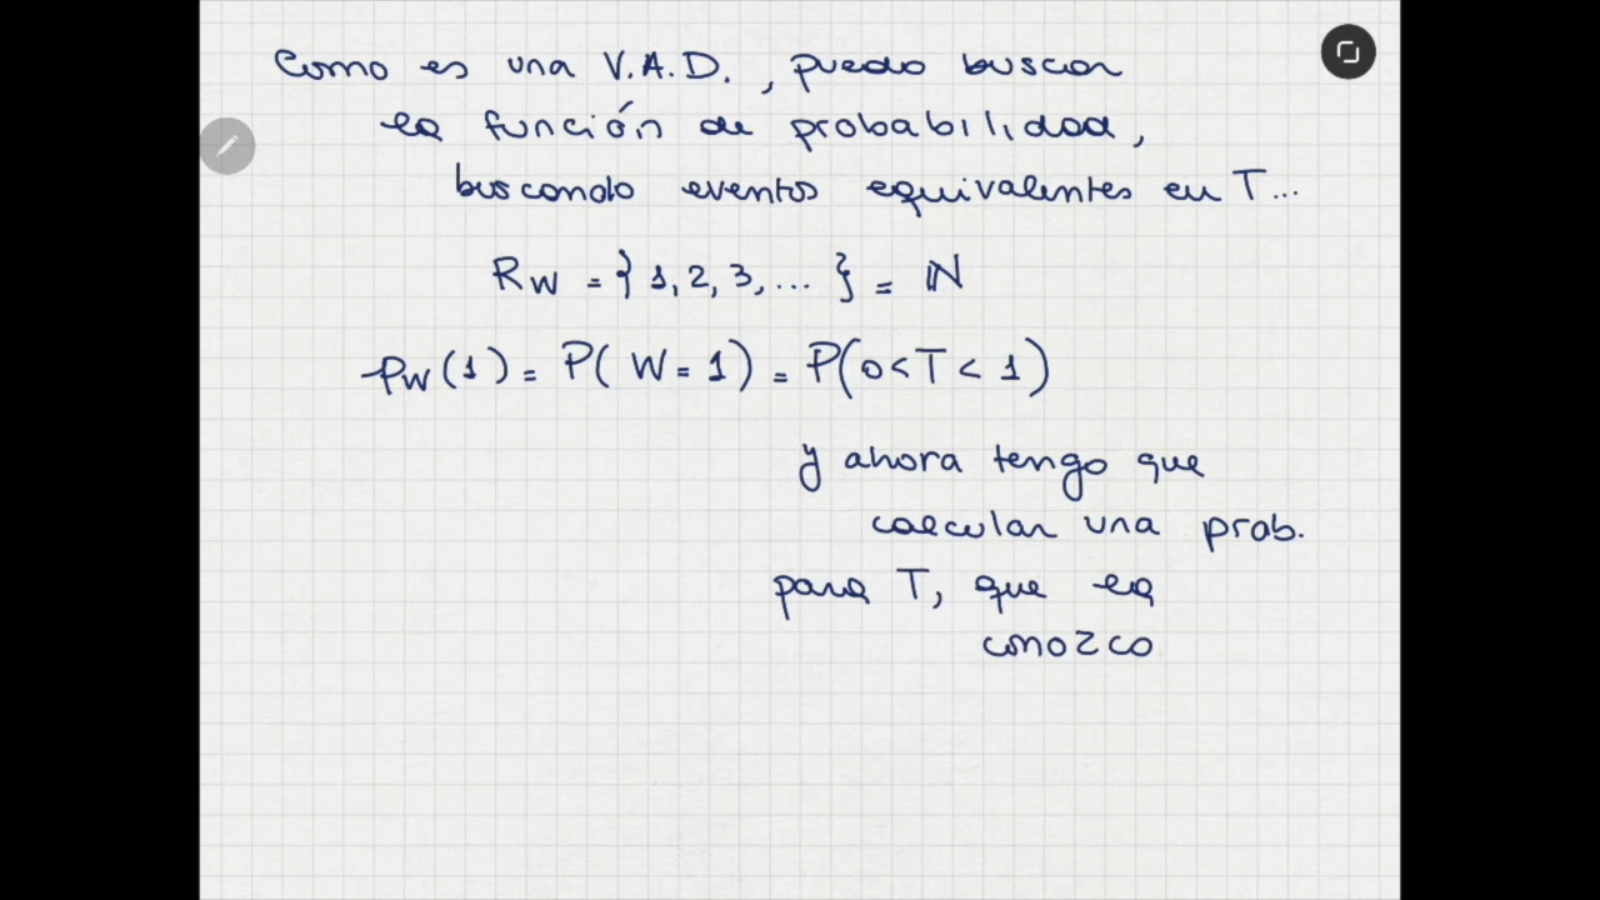 Como es una V.A.D., puedo buscar
la función de probabilidad,
buscando eventos equivalentes en T...
R_W = { 1, 2, 3, ... } = ℕ
p_W(1) = P( W = 1) = P(0 < T < 1)
y ahora tengo que
calcular una prob.
para T, que la
conozco